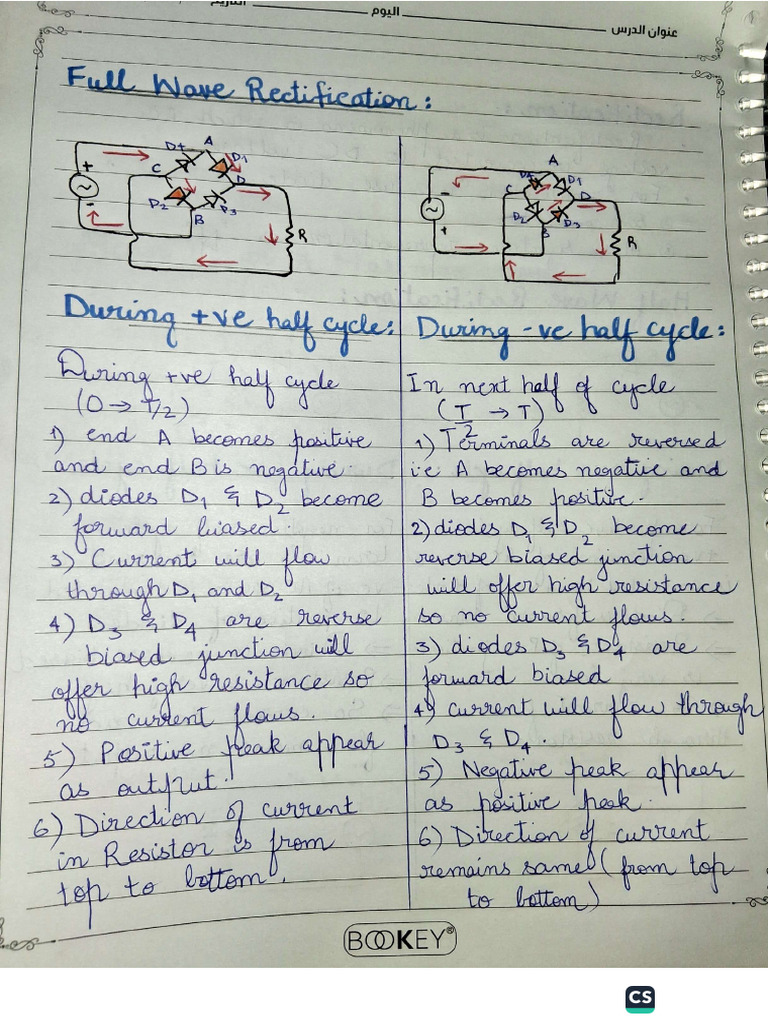 اليوم
عنوان الدرس
Full Wave Rectification:
D4
A
D1
C
D
D2
D3
B
+
-
R
A
D4
D1
C
D
D2
D3
B
-
+
R
During +ve half cycle:
During +ve half cycle
(0 → T/2)
1) end A becomes positive
and end B is negative.
2) diodes D1 & D2 become
forward biased.
3) Current will flow
through D1 and D2
4) D3 & D4 are reverse
biased junction will
offer high resistance so
no current flows.
5) Positive peak appear
as output.
6) Direction of current
in Resistor is from
top to bottom.
During -ve half cycle:
In next half of cycle
(T/2 → T)
1) Terminals are reversed
i.e A becomes negative and
B becomes positive.
2) diodes D1 & D2 become
reverse biased junction
will offer high resistance
so no current flows.
3) diodes D3 & D4 are
forward biased
4) current will flow through
D3 & D4.
5) Negative peak appear
as positive peak.
6) Direction of current
remains same (from top
to bottom)
BOOKEY®
CS